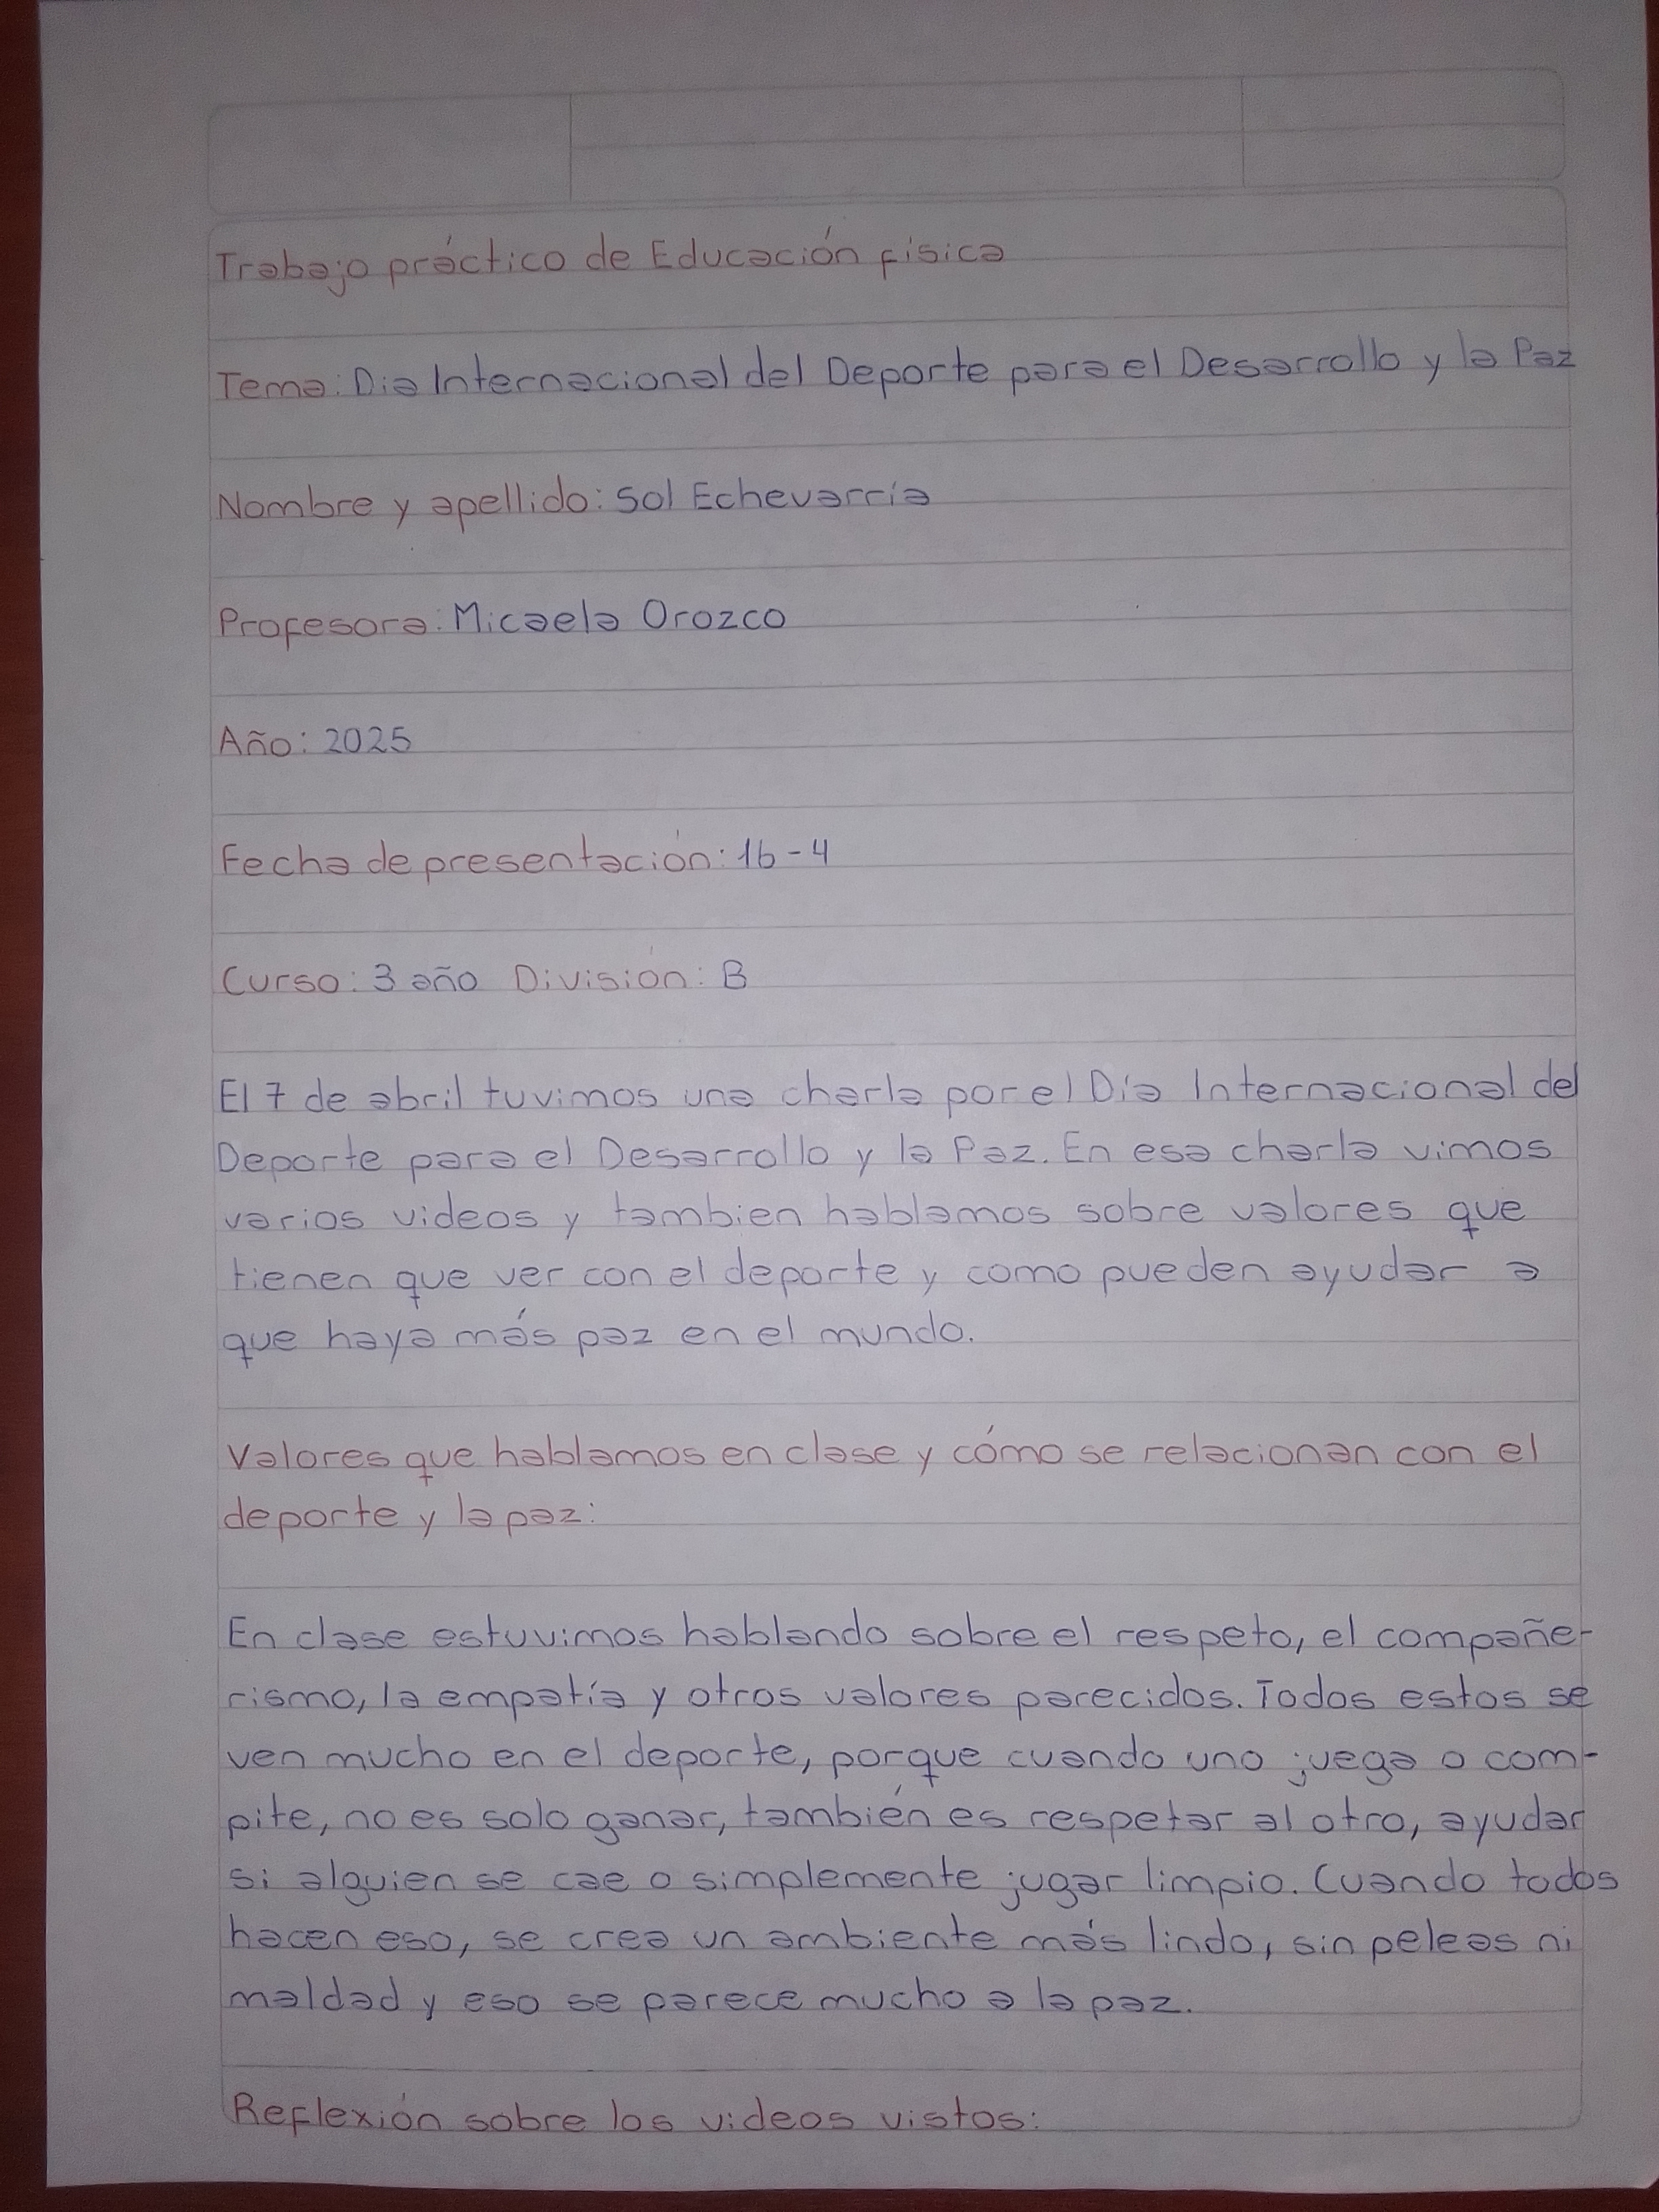 Trabajo práctico de Educación física
Tema: Dia Internacional del Deporte para el Desarrollo y la Paz
Nombre y apellido: Sol Echevarría
Profesora: Micaela Orozco
Año: 2025
Fecha de presentación: 16-4
Curso: 3 año División: B
El 7 de abril tuvimos una charla por el Día Internacional del
Deporte para el Desarrollo y la Paz. En esa charla vimos
varios videos y tambien hablamos sobre valores que
tienen que ver con el deporte y como pueden ayudar a
que haya más paz en el mundo.
Valores que hablamos en clase y cómo se relacionan con el
deporte y la paz:
En clase estuvimos hablando sobre el respeto, el compañe-
rismo, la empatía y otros valores parecidos. Todos estos se
ven mucho en el deporte, porque cuando uno juega o com-
pite, no es solo ganar, también es respetar al otro, ayudar
si alguien se cae o simplemente jugar limpio. Cuando todos
hacen eso, se crea un ambiente más lindo, sin peleas ni
maldad y eso se parece mucho a la paz.
Reflexión sobre los videos vistos: